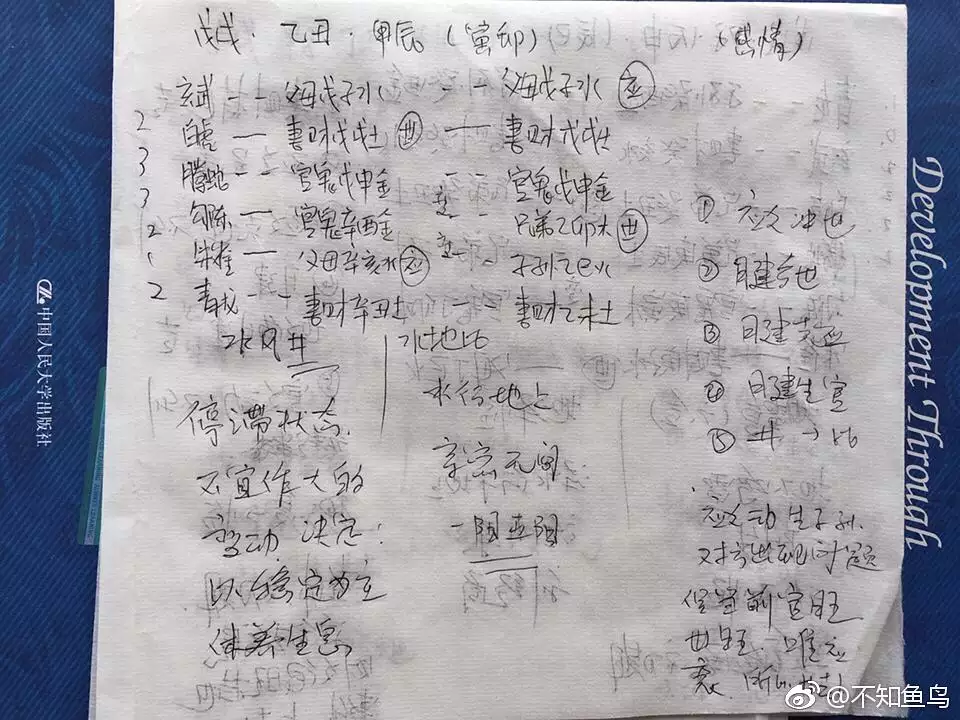 戊戌·乙丑·甲辰(寅卯) (感情)
玄武 - - 父母戊子水 - - 父母戊子水 应
2 白虎 — 妻财戊戌土 世 — 妻财戊戌土
3 腾蛇 - - 官鬼戊申金 - - 官鬼戊申金
3 勾陈 — 官鬼辛酉金 - - 兄弟乙卯木 世
2 朱雀 — 父母辛亥水 应 - - 子孙乙巳火
1
2 青龙 - - 妻财辛丑土 妻财乙未土
水风井
水地比
停滞状态.
不宜作大的
变动 决定:
以稳定为主
休养生息
水行地上
亲密无间
① 应爻冲世
② 日建 世
③ 日建 应
④ 月建生官
⑤ 井→比
应爻动生子孙.
对方出现问题
官旺
世旺. 唯应
衰.
中国人民大学出版社
Development Through
@不知鱼鸟